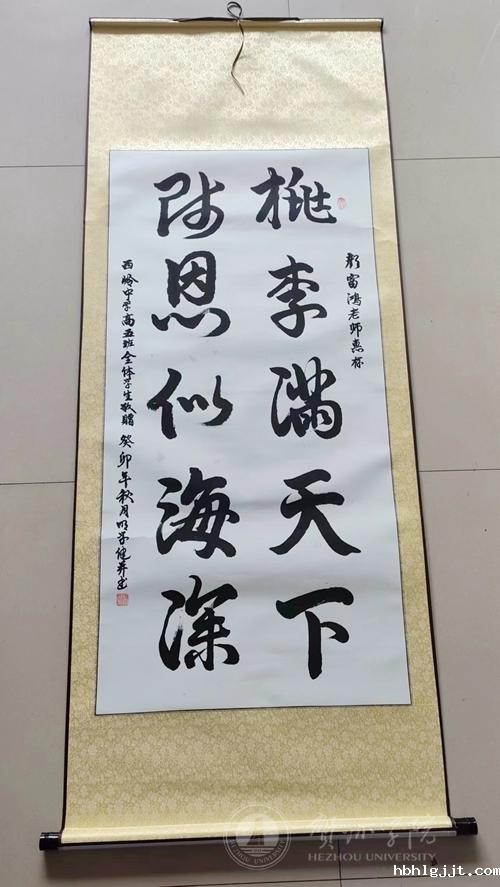 彭富鸿老师惠存
桃李满天下
师恩似海深
西岭中学高五班全体学生敬赠 癸卯年秋月
贺州学院
HEZHOU UNIVERSITY
hbhlgjjt.com